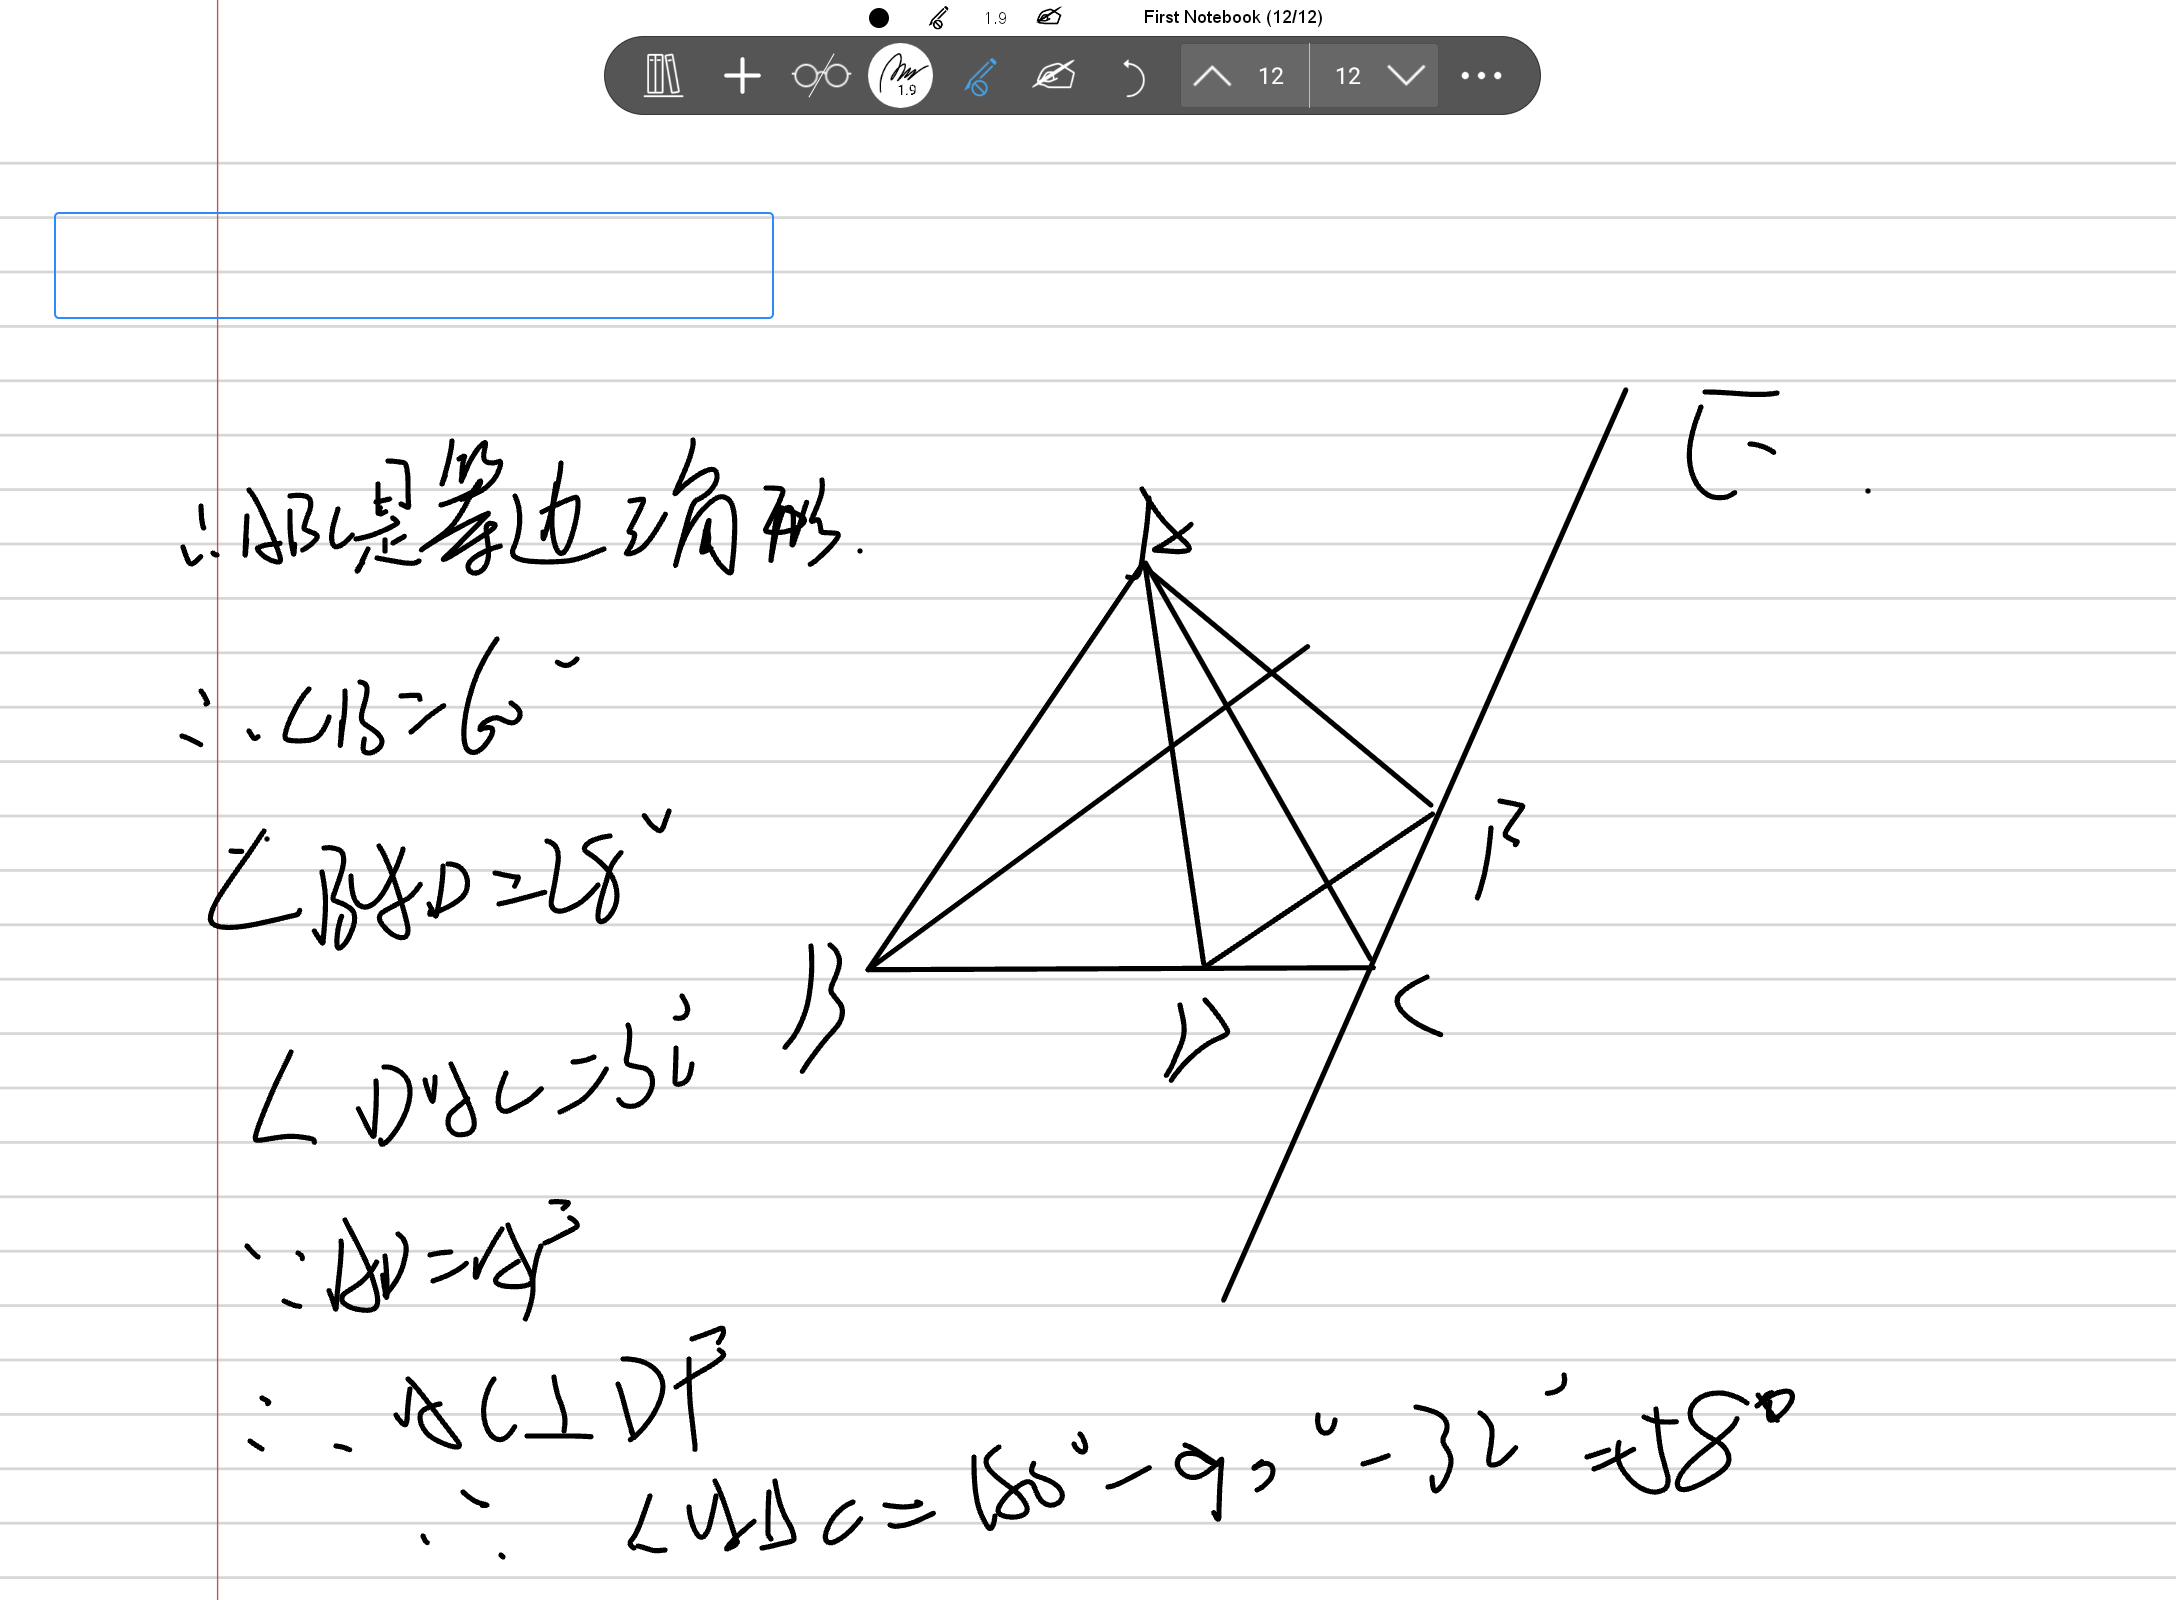 1.9 First Notebook (12/12)
1.9 12 12
∴ABC是等边三角形.
∴∠B=60°
∠BAD=28°
∠DAC=32°
∵AD=AF
∴AC⊥DF
∴∠ADC=180°-90°-32°=58°
A
E
F
B
D
C